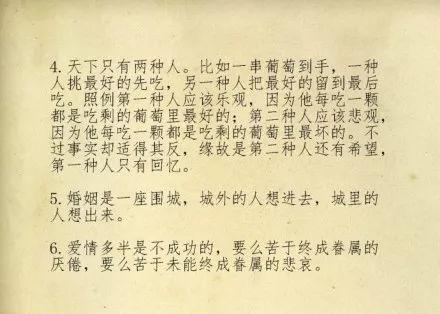 4. 天下只有两种人。比如一串葡萄到手，一种
人挑最好的先吃，另一种人把最好的留到最后
吃。照例第一种人应该乐观，因为他每吃一颗
都是吃剩的葡萄里最好的；第二种人应该悲观，
因为他每吃一颗都是吃剩的葡萄里最坏的。不
过事实却适得其反，缘故是第二种人还有希望，
第一种人只有回忆。
5. 婚姻是一座围城，城外的人想进去，城里的
人想出来。
6. 爱情多半是不成功的，要么苦于终成眷属的
厌倦，要么苦于未能终成眷属的悲哀。